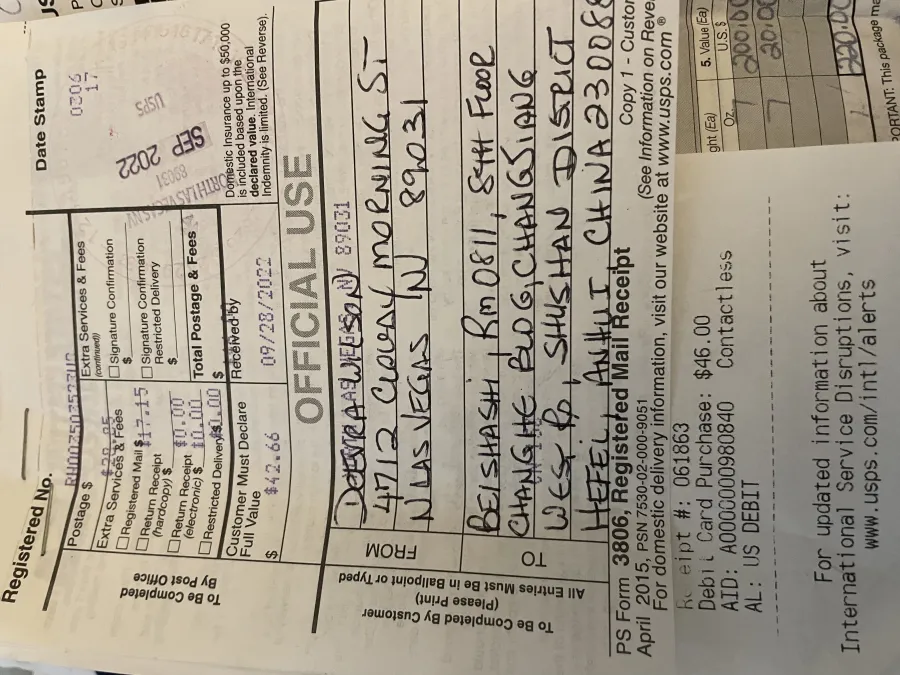 Registered No.
RH002502573US
Date Stamp
To Be Completed
By Post Office
Postage $
Extra Services & Fees
(continued)
Extra Services & Fees
$28.85
☐ Signature Confirmation
$
☐ Registered Mail $ $17.15
☐ Signature Confirmation
Restricted Delivery
$
☐ Return Receipt
(hardcopy) $ $0.00
☐ Return Receipt
(electronic) $ $0.00
☐ Restricted Delivery $ $0.00
Total Postage & Fees
$
0306
17
USPS
SEP 2022
89031
NORTH LAS VEGAS NV
Customer Must Declare
Full Value
$ $42.66
Received by
09/28/2022
Domestic Insurance up to $50,000
is included based upon the
declared value. International
Indemnity is limited. (See Reverse).
OFFICIAL USE
To Be Completed By Customer
(Please Print)
All Entries Must Be in Ballpoint or Typed
FROM
WILSON
89031
4712 CLOUDY MORNING ST
N LAS VEGAS NV 89031
TO
BEISHASHI, RM 0811, 8TH FOOR
CHANGHE BLDG, CHANGJIANG
WES, RD, SHUSHAN DISTRICT
HEFEI, ANHUI CHINA 230088
PS Form 3806, Registered Mail Receipt
Copy 1 - Custom
April 2015, PSN 7530-02-000-9051
(See Information on Reve
For domestic delivery information, visit our website at www.usps.com ®
Receipt #: 061863
Debit Card Purchase: $46.00
AID: A0000000980840 Contactless
AL: US DEBIT
For updated information about
International Service Disruptions, visit:
www.usps.com/intl/alerts
ght (Ea)
Oz.
5. Value (Ea)
U.S. $
7 200.00
7 20.00
220.00
ORTANT: This package ma